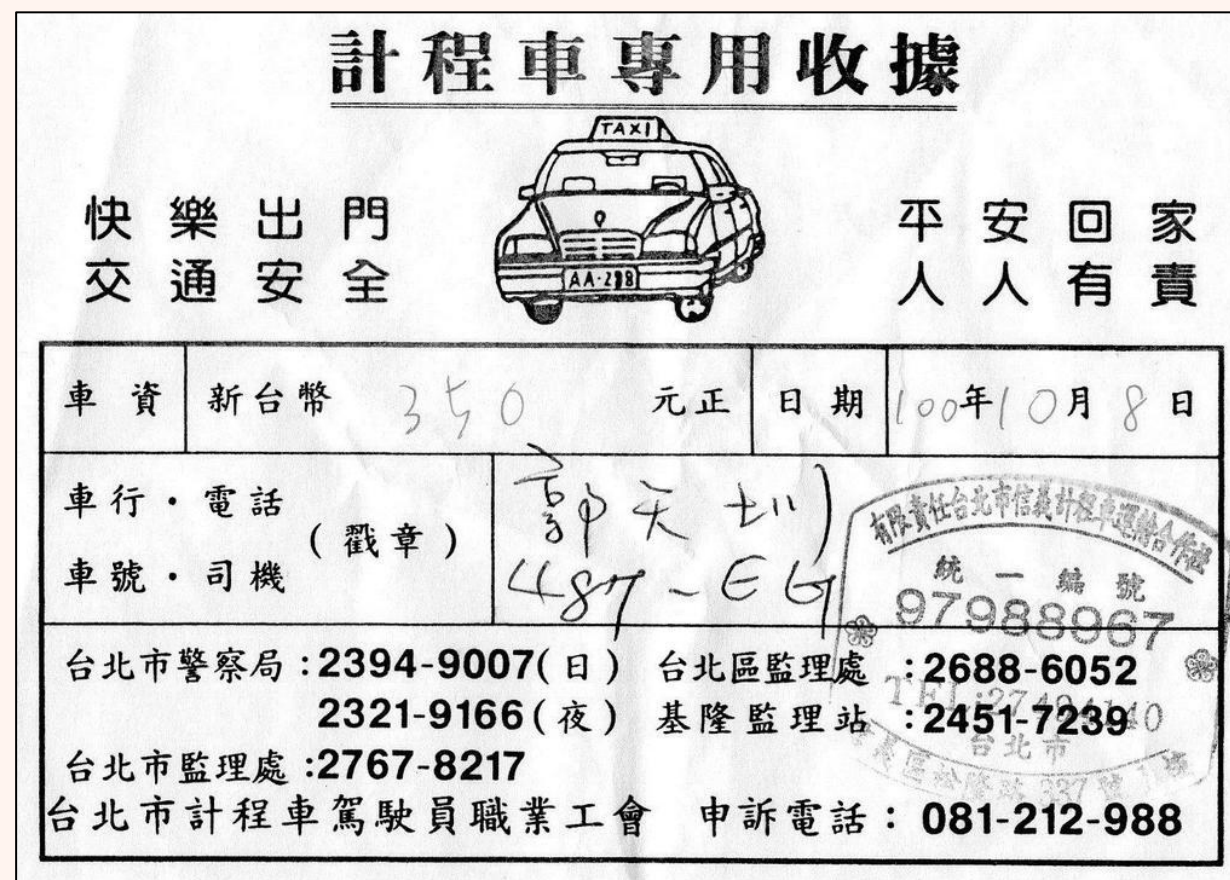 計程車專用收據
TAXI
AA-298
快樂出門 平安回家
交通安全 人人有責
車資 新台幣 350 元正 日期 100年10月8日
車行・電話
車號・司機
(戳章)
郭天圳
487-EG
有限責任台北市信義計程車運輸合作社
統一編號
97988967
台北市警察局:2394-9007(日) 台北區監理處:2688-6052
2321-9166(夜) 基隆監理站:2451-7239
台北市監理處:2767-8217
台北市
台北市計程車駕駛員職業工會 申訴電話:081-212-988